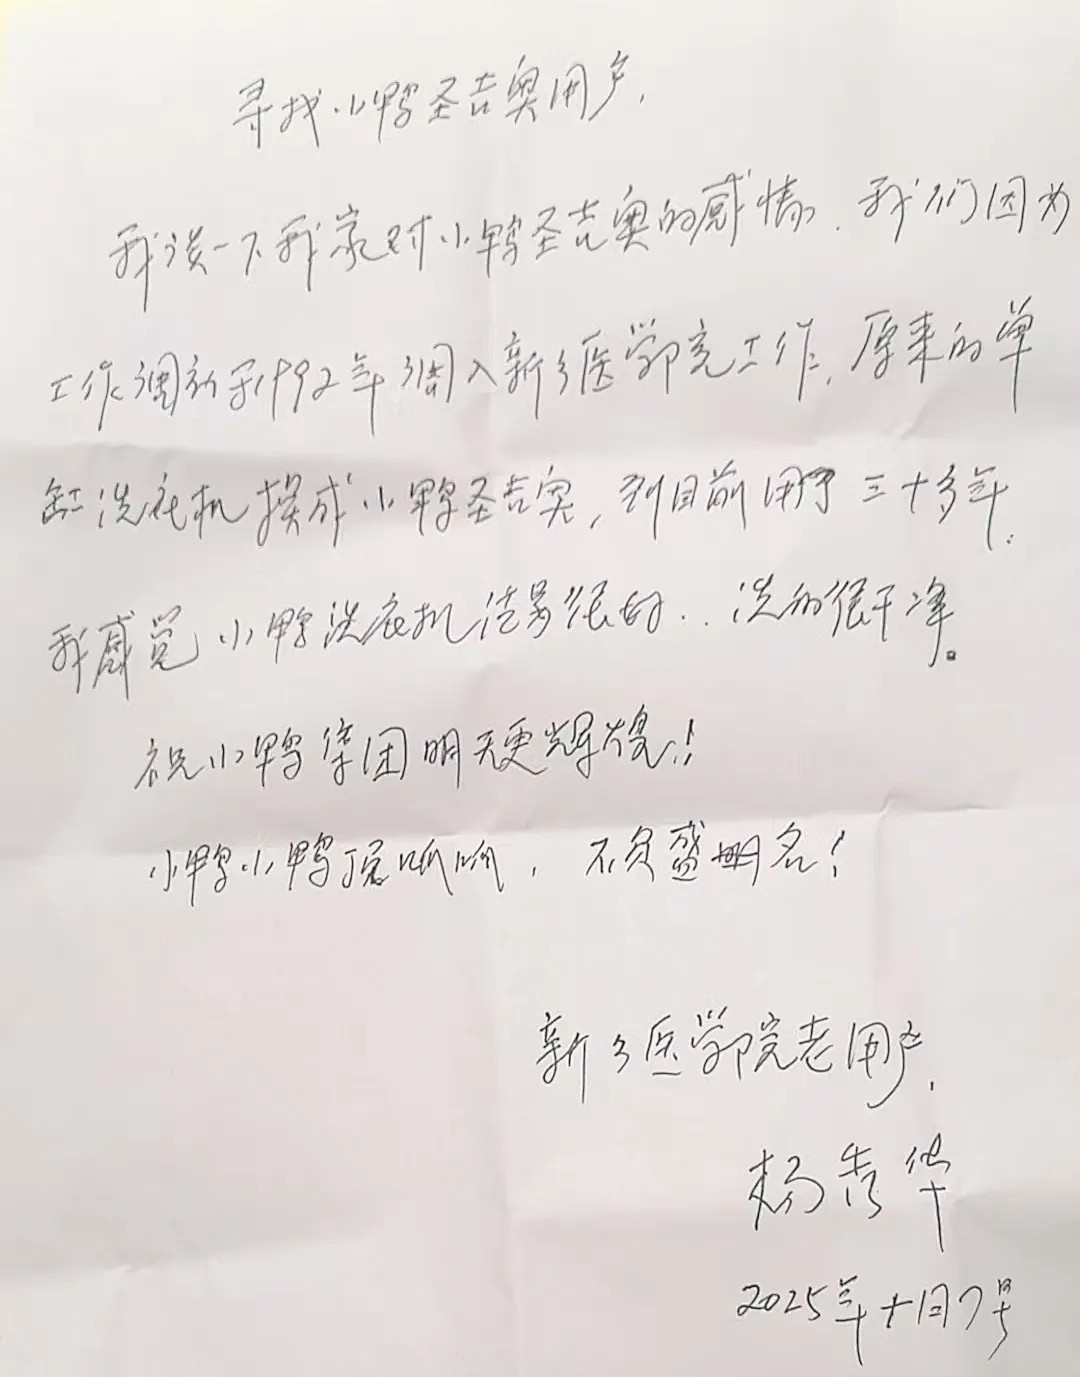 寻找小鸭圣吉奥用户,
我谈一下我家对小鸭圣吉奥的感情.我们因为
工作调动于1992年调入新乡医学院工作,原来的单
缸洗衣机换成小鸭圣吉奥,到目前用了三十多年.
我感觉小鸭洗衣机结果很好..洗的很干净。
祝小鸭集团明天更辉煌!
小鸭小鸭顶呱呱,不负盛名!
新乡医学院老用户,
杨秀华
2025年十月7号